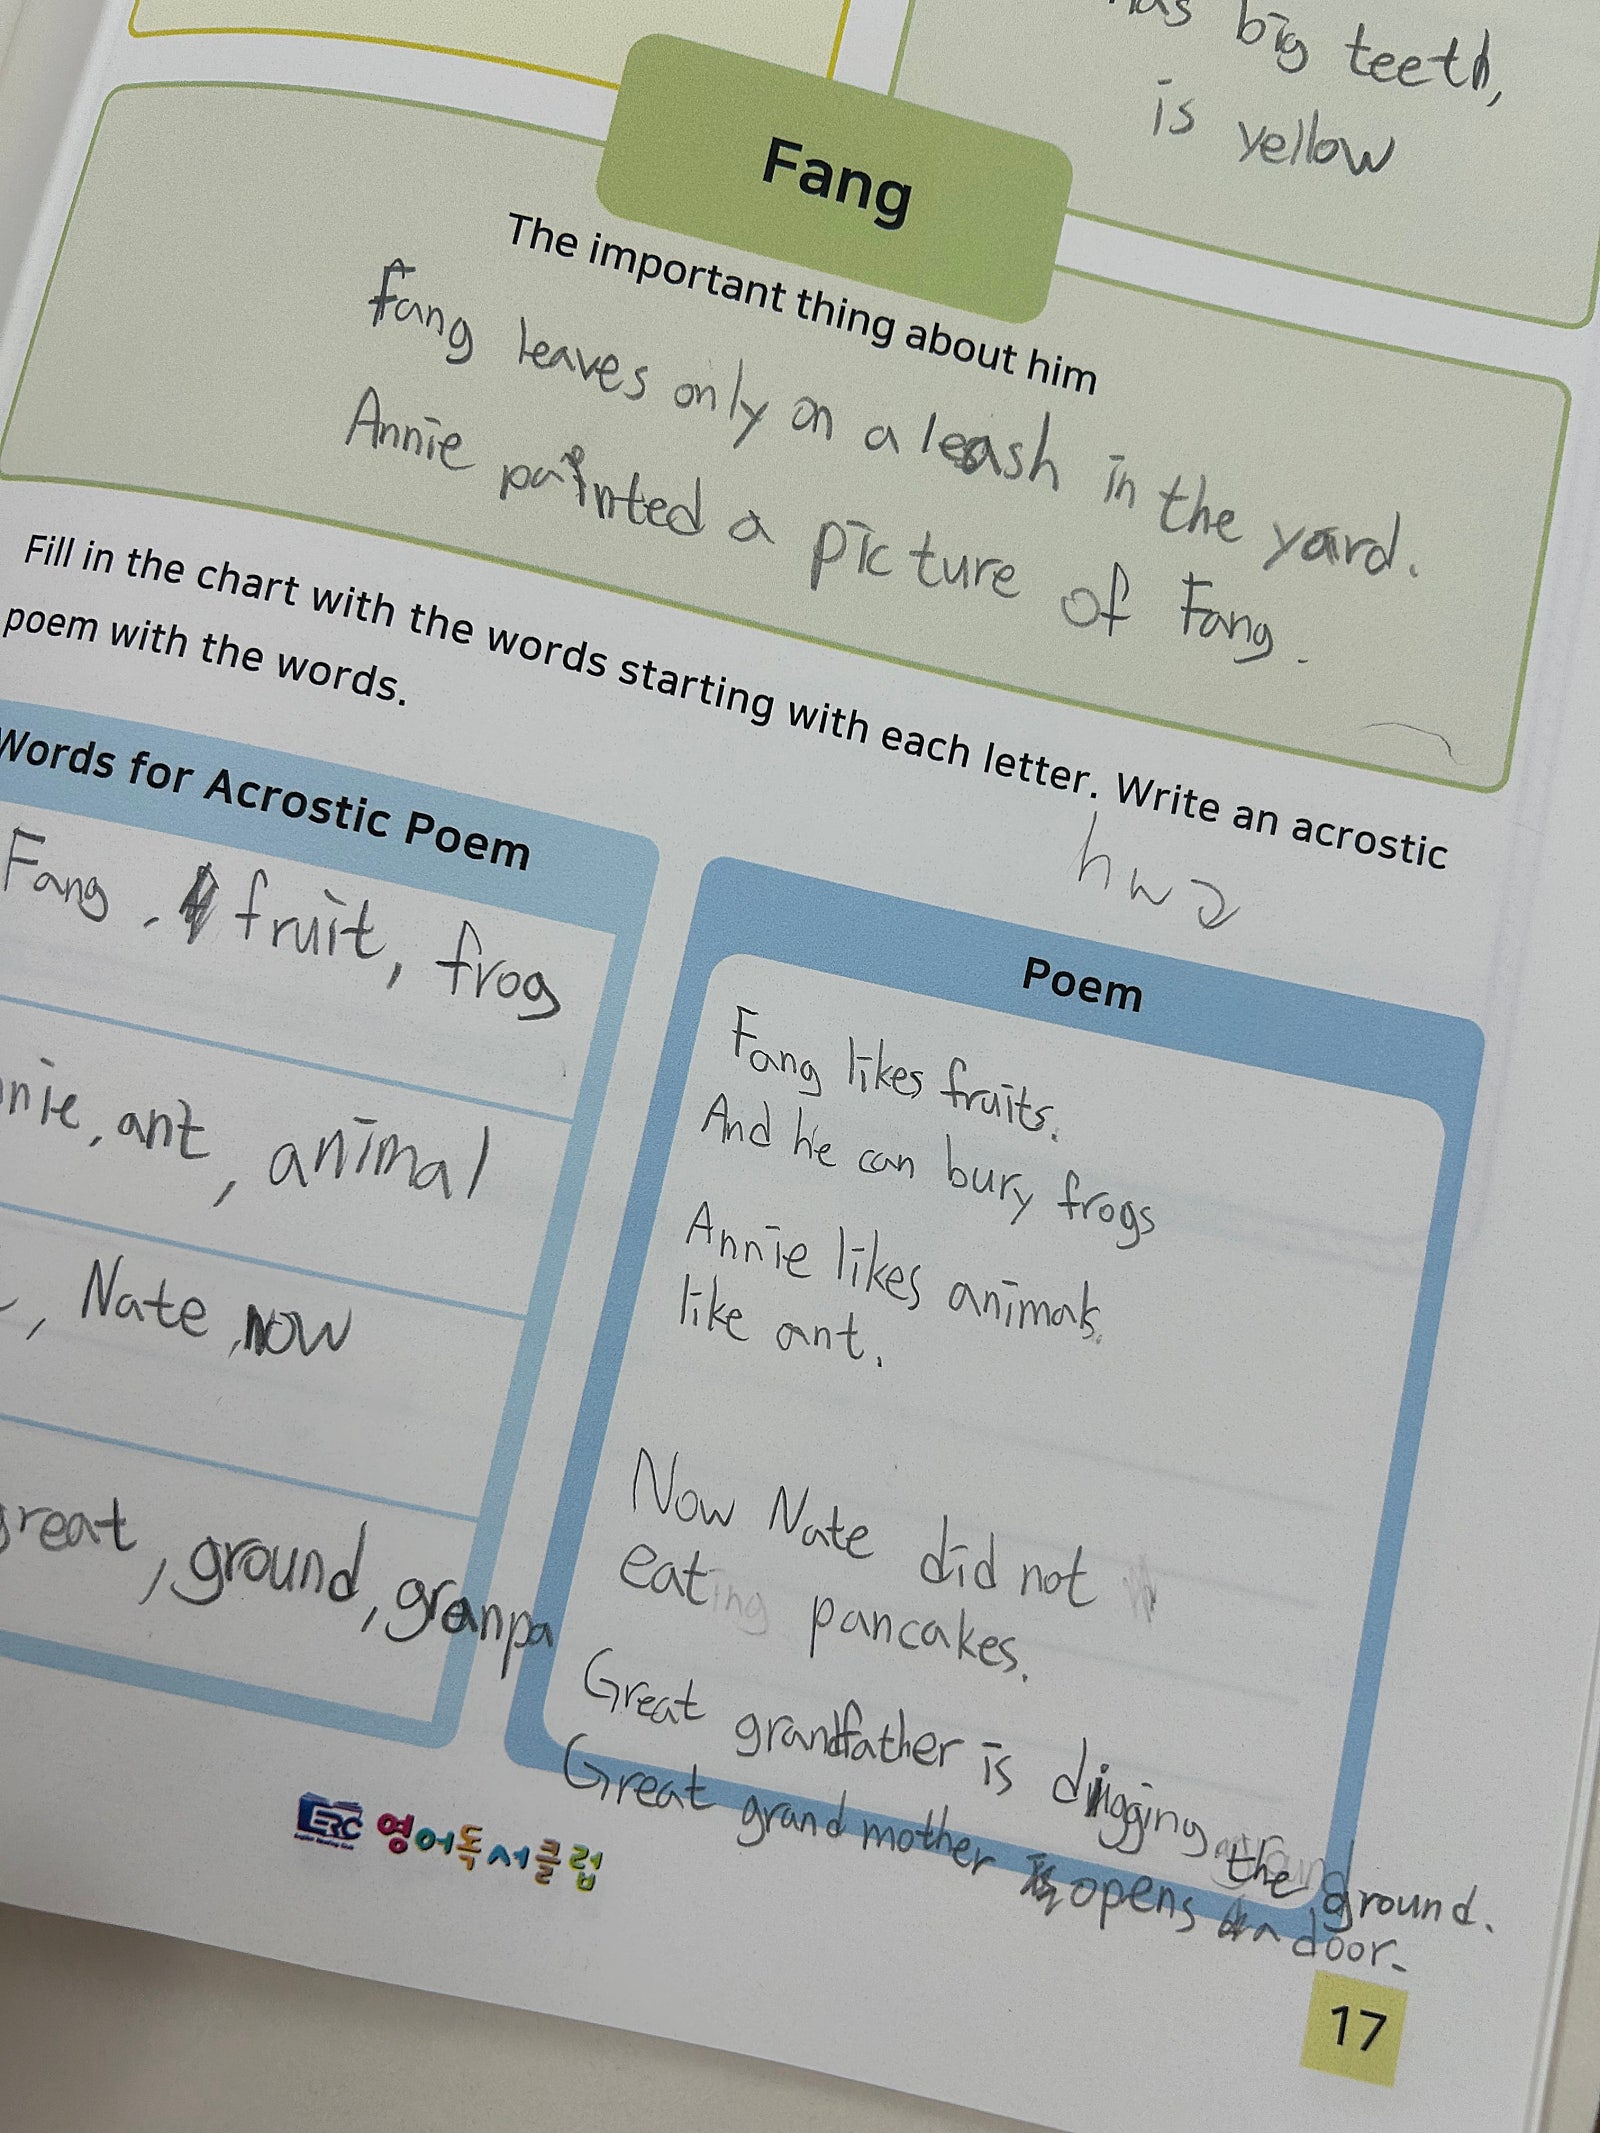 big teeth,
is yellow
Fang
The important thing about him
Fang leaves only on a leash in the yard.
Annie painted a picture of Fang.
Fill in the chart with the words starting with each letter. Write an acrostic
poem with the words.
hw2
Words for Acrostic Poem
Fang, fruit, frog
ant, animal
, Nate, now
great, ground, granpa
Poem
Fang likes fruits.
And he can bury frogs
Annie likes animals.
like ant.
Now Nate did not
eating pancakes.
Great grandfather is digging the ground.
Great grandmother opens a door.
ERC 영어독서클럽
17